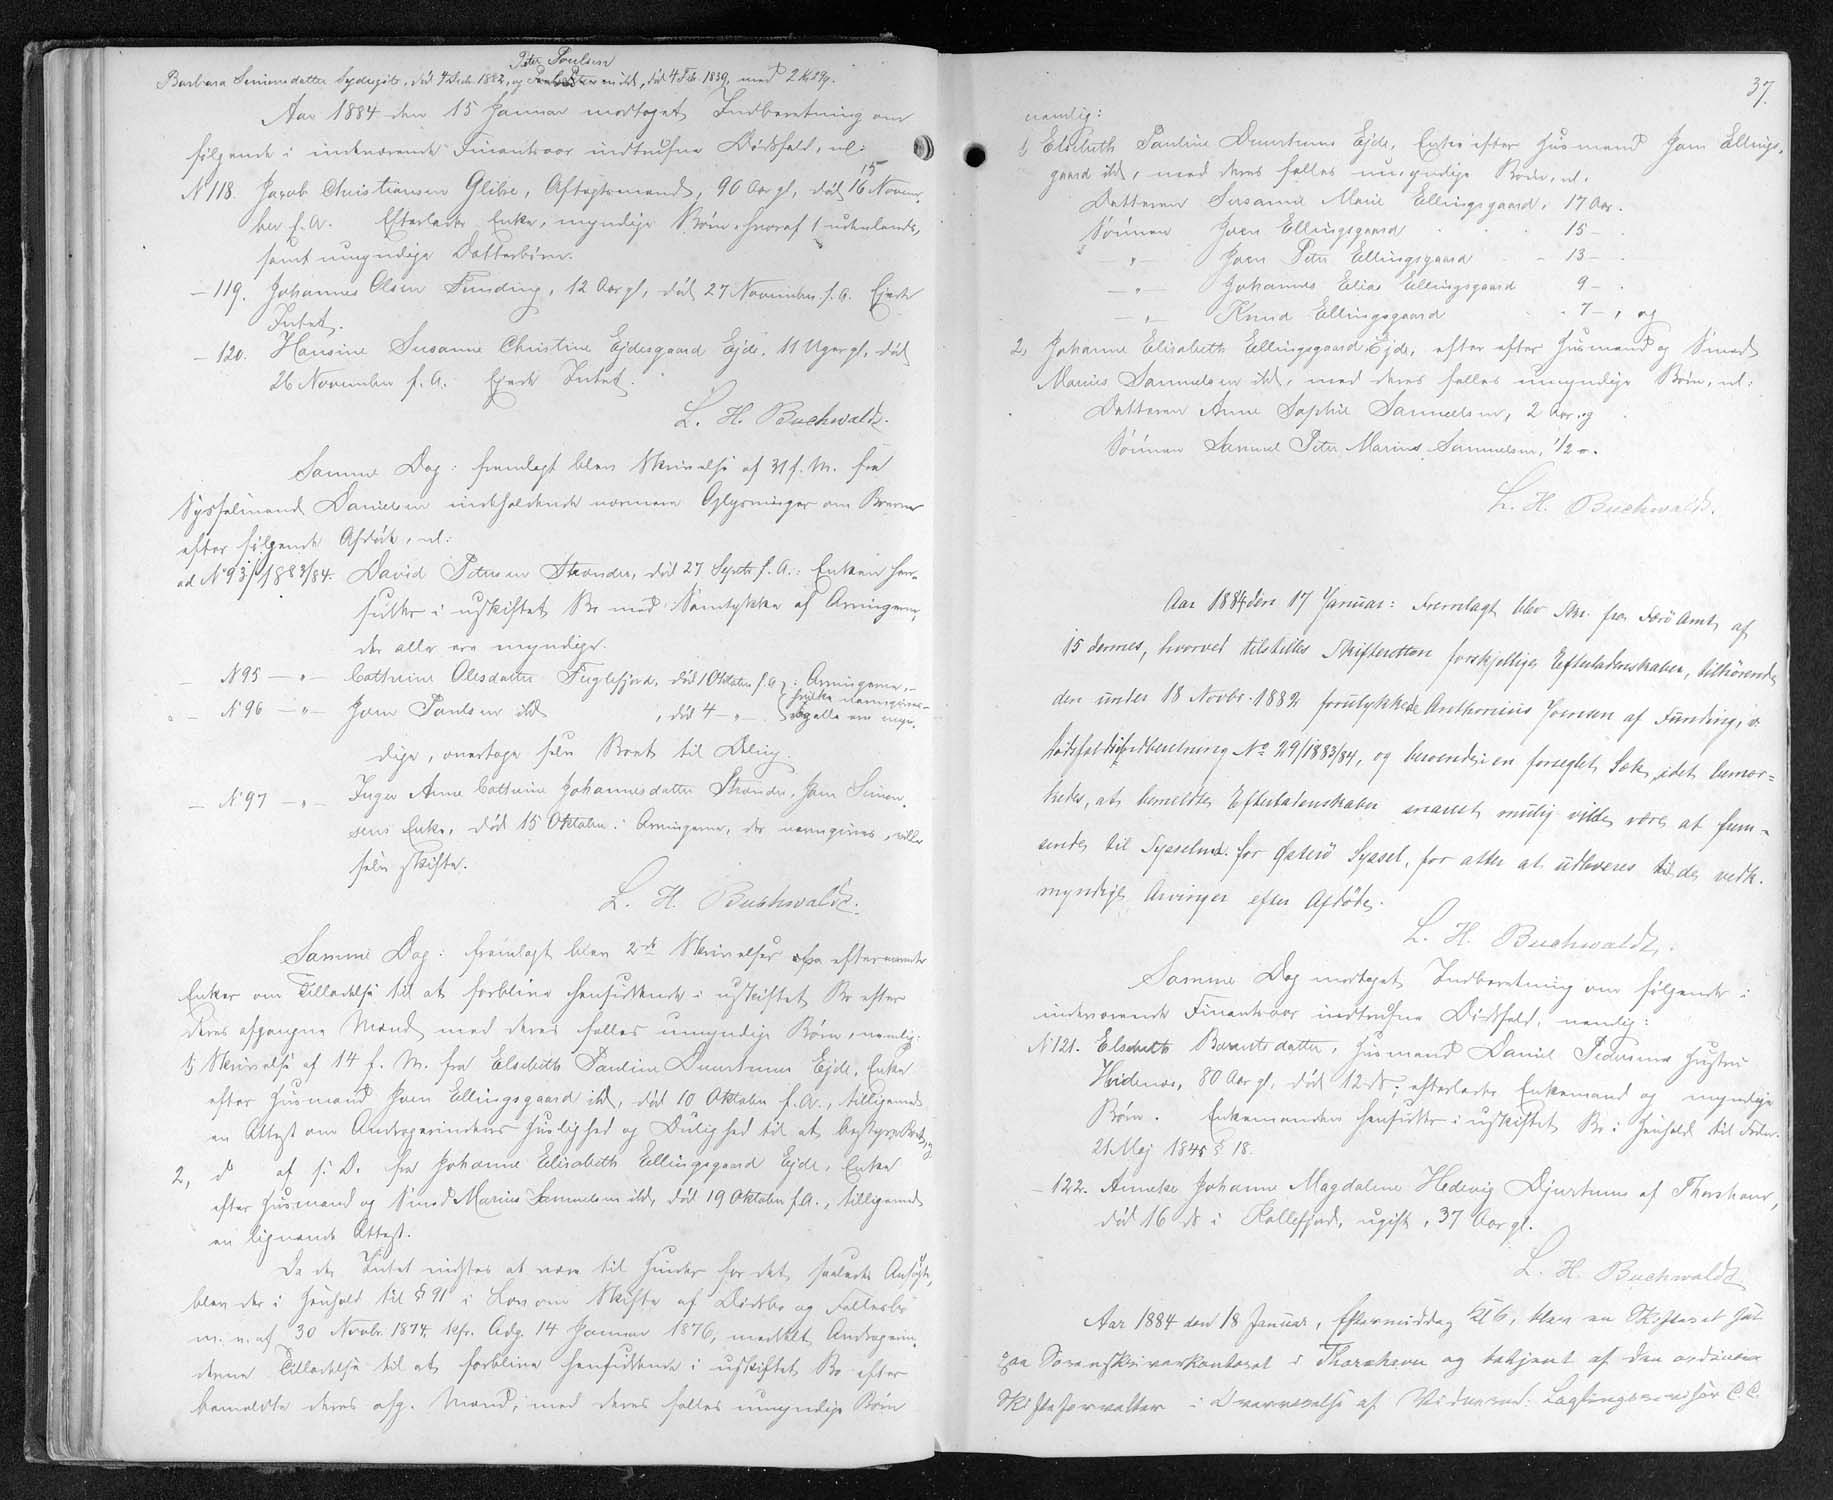 Peter Poulsen
Barbara Simonsdatter Sydregöte, död 4 Decb. 1882, og ibd, död 4 Feb. 1839, med 2 Kr 29 ø.
Aar 1884 den 15 Januar modtoget Indberetning om
følgende i indeværende Finantsaar indtrufne Dödsfald, nl:
N 118. Jacob Christiansen Glibre, Aftægtsmand, 96 Aar gl., död 15 Novem-
ber f. A. Efterlader Enke, myndige Børn, hvoraf 1 udenlands,
samt umyndige Datterbörn.
— 119. Johannes Olsen Funding, 12 Aar gl., död 27 November f. A. Ejede
Intet.
— 120. Hansine Susanne Christine Ejdesgaard Ejde, 11 Uger gl., död
26 November f. A. Ejede Intet.
L. H. Buchwaldt.
Samme Dag: fremlagt blev Skrivelse af 31 f. M. fra
Sysselmand Danielsen indeholdende nærmere Oplysninger om Boerne
efter følgende Afdöde, nl:
ad N 93/1883/84. David Petersen Strender, död 27 Septb f. A.: Enken hen-
sidder i uskiftet Bo med Samtykke af Arvingerne,
der alle ere myndige.
— N 95 — " — Cathrine Olesdatter Fuglefjord, död 1 Oktober f. A.: Arvingerne,
— N 96 — " — Joen Poulsen ibd, död 4 — " — hvilke navngives
og alle ere myn-
dige, overtage selv Boet til Deling.
— N 97 — " — Inger Anne Cathrine Johannesdatter Strender, Joen Simon-
sens Enke, död 15 Oktober: Arvingerne, der navngives, ville
selv skifte.
L. H. Buchwaldt.
Samme Dag: fremlagt blev 2de Skrivelser fra efternævnte
Enker om Tilladelse til at forblive hensiddende i uskiftet Bo efter
deres afgangne Mænd med deres fælles umyndige Børn, nemlig:
1, Skrivelse af 14 f. M. fra Elsebeth Pauline Duurhuus Ejde, Enke
efter Husmand Joen Ellingsgaard ibd, död 10 Oktober f. A., tilligemed
en Attest om Andragerindens Huslighed og Duelighed til at bestyre Boet, og
2, do af s. D. fra Johanne Elisabeth Ellingsgaard Ejde, Enke
efter Husmand og Smed Marius Samuelsen ibd, död 19 Oktober f. A., tilligemed
en lignende Attest.
Da der Intet vidstes at være til Hinder for det saaledes Ansögte,
blev der i Henhold til § 91 i Lov om Skifte af Dödsbo og Fællesbo
m. v. af 30 Novbr. 1874, kfr. Adg. 14 Januar 1876, meddelt Andragerin-
derne Tilladelse til at forblive hensiddende i uskiftet Bo efter
bemeldte deres afg. Mænd, med deres fælles umyndige Børn
37.
nemlig:
1, Elsebeth Pauline Duurhuus Ejde, Enke efter Husmand Joen Ellings-
gaard ibd, med deres fælles umyndige Børn, nl.
Datteren Susanne Marie Ellingsgaard, 17 Aar.
Sönnen Joen Ellingsgaard 15 —
— " — Joen Peter Ellingsgaard 13 —
— " — Johannes Elias Ellingsgaard 9 —
— " — Knud Ellingsgaard 7 —, og
2, Johanne Elisabeth Ellingsgaard, Ejde, efter efter Husmand og Smed
Marius Samuelsen ibd, med deres fælles umyndige Børn, nl:
Datteren Anne Sophie Samuelsen, 2 Aar, og
Sönnen Samuel Peter Marius Samuelsen, 1/2 o.
L. H. Buchwaldt.
Aar 1884 den 17 Januar: Fremlagt blev Skr. fra Færö Amt af
15 dennes, hvorved tilstilles Skifteretten forskjellige Efterladenskaber, tilhörende
den under 18 Novbr. 1882 forulykkede Anthonius Joensen af Funding, v.
Dödsfaldsindberetning No 29/1883/84, og beroende i en forseglet Sæk, idet bemær-
kedes, at bemeldte Efterladenskaber snarest mulig vilde være at frem-
sende til Sysselmd. for Österö Syssel, for atter at udleveres til de vedk.
myndige Arvinger efter Afdöde.
L. H. Buchwaldt.
Samme Dag modtoget Indberetning om følgende i
indeværende Finantsaar indtrufne Dödsfald, nemlig:
N 121. Elsebeth Barentsdatter, Husmand Daniel Pedersens Hustru
Hvidenæs, 80 Aar gl., död 12 ds; efterlader Enkemand og myndige
Børn. Enkemanden hensidder i uskiftet Bo i Henhold til Frdn.
21 Maj 1845 § 18.
— 122. Anneke Johanne Magdalene Hedevig Djurhuus af Thorshavn,
död 16 ds i Kollefjord, ugift, 37 Aar gl.
L. H. Buchwaldt
Aar 1884 den 18 Januar, Eftermiddag Kl 6, blev en Skifteret sat
paa Sorenskriverkontoret i Thorshavn og betjent af den ordinære
Skifteforvalter i Overværelse af Vidnerne: Lagtingsrevisör C. C.